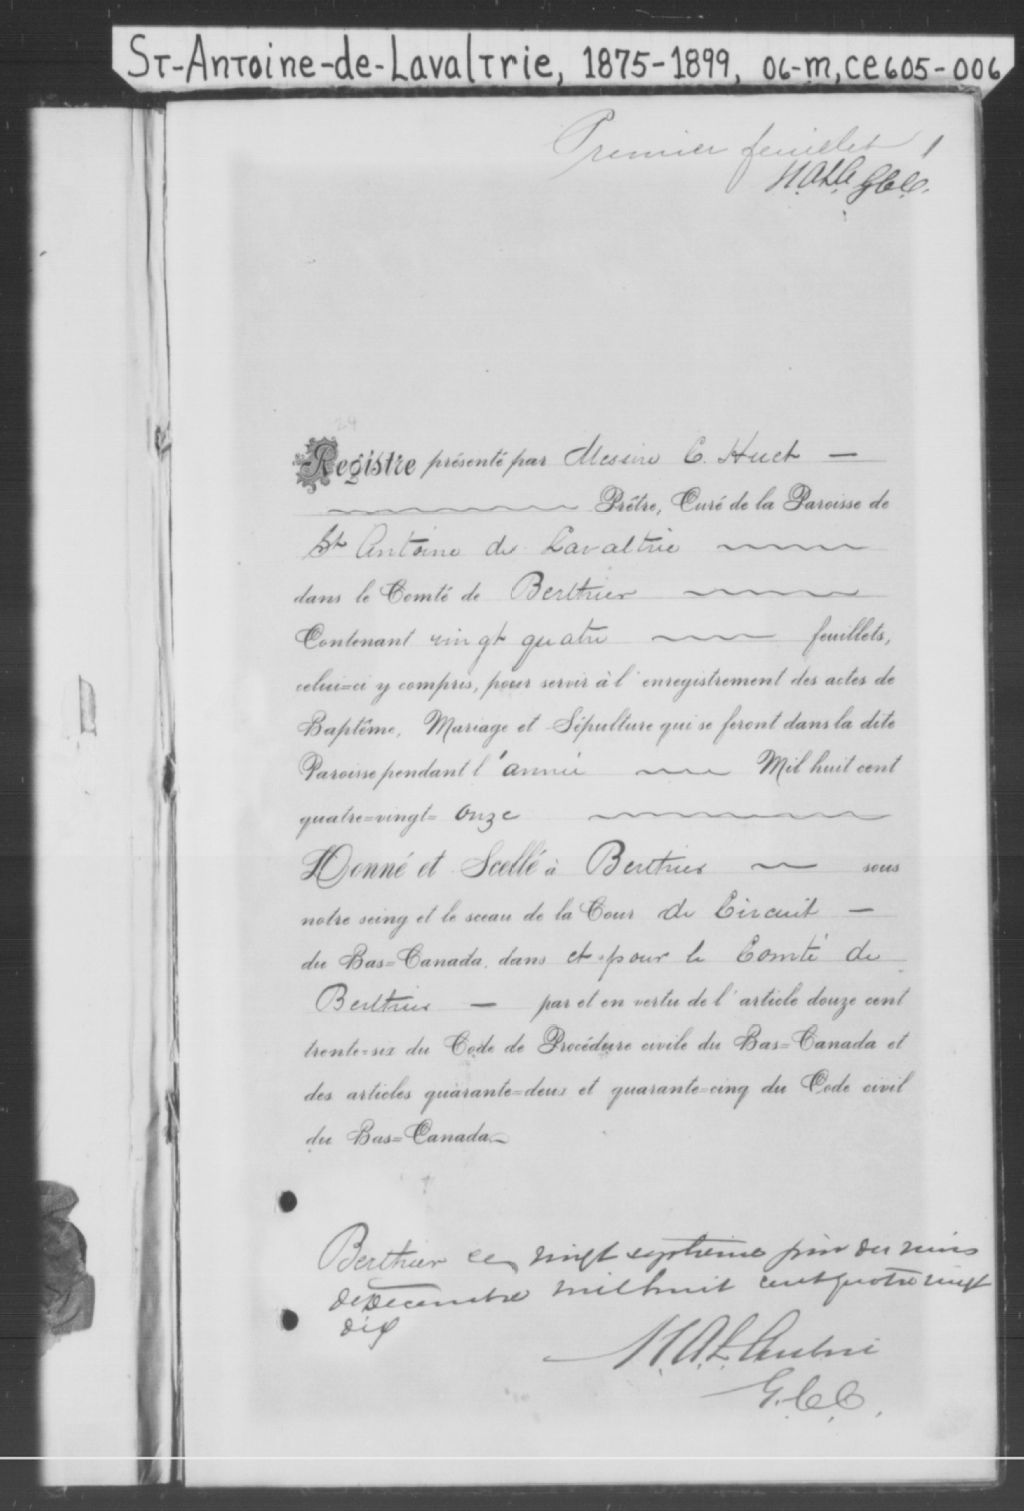 ST-ANTOINE-de-LavalTrie, 1875-1899, 06-M, CE605-006
Premier feuillet 1
H.A.L.A. G.C.C.
Registre présenté par Messire C. Huet —
Prêtre, Curé de la Paroisse de
St Antoine de Lavaltrie
dans le Comté de Berthier
Contenant vingt quatre feuillets,
celui=ci y compris, pour servir à l'enregistrement des actes de
Baptême, Mariage et Sépulture qui se feront dans la dite
Paroisse pendant l'année Mil huit cent
quatre=vingt= onze
Donné et Scellé à Berthier sous
notre seing et le sceau de la Cour de Circuit —
du Bas=Canada, dans et pour le Comté de
Berthier — par et en vertu de l'article douze cent
trente=six du Code de Procédure civile du Bas=Canada et
des articles quarante=deux et quarante=cinq du Code civil
du Bas=Canada.
Berthier ce vingt septieme jour du mois
de Decembre mil huit cent quatre vingt
dix
G.C.C.